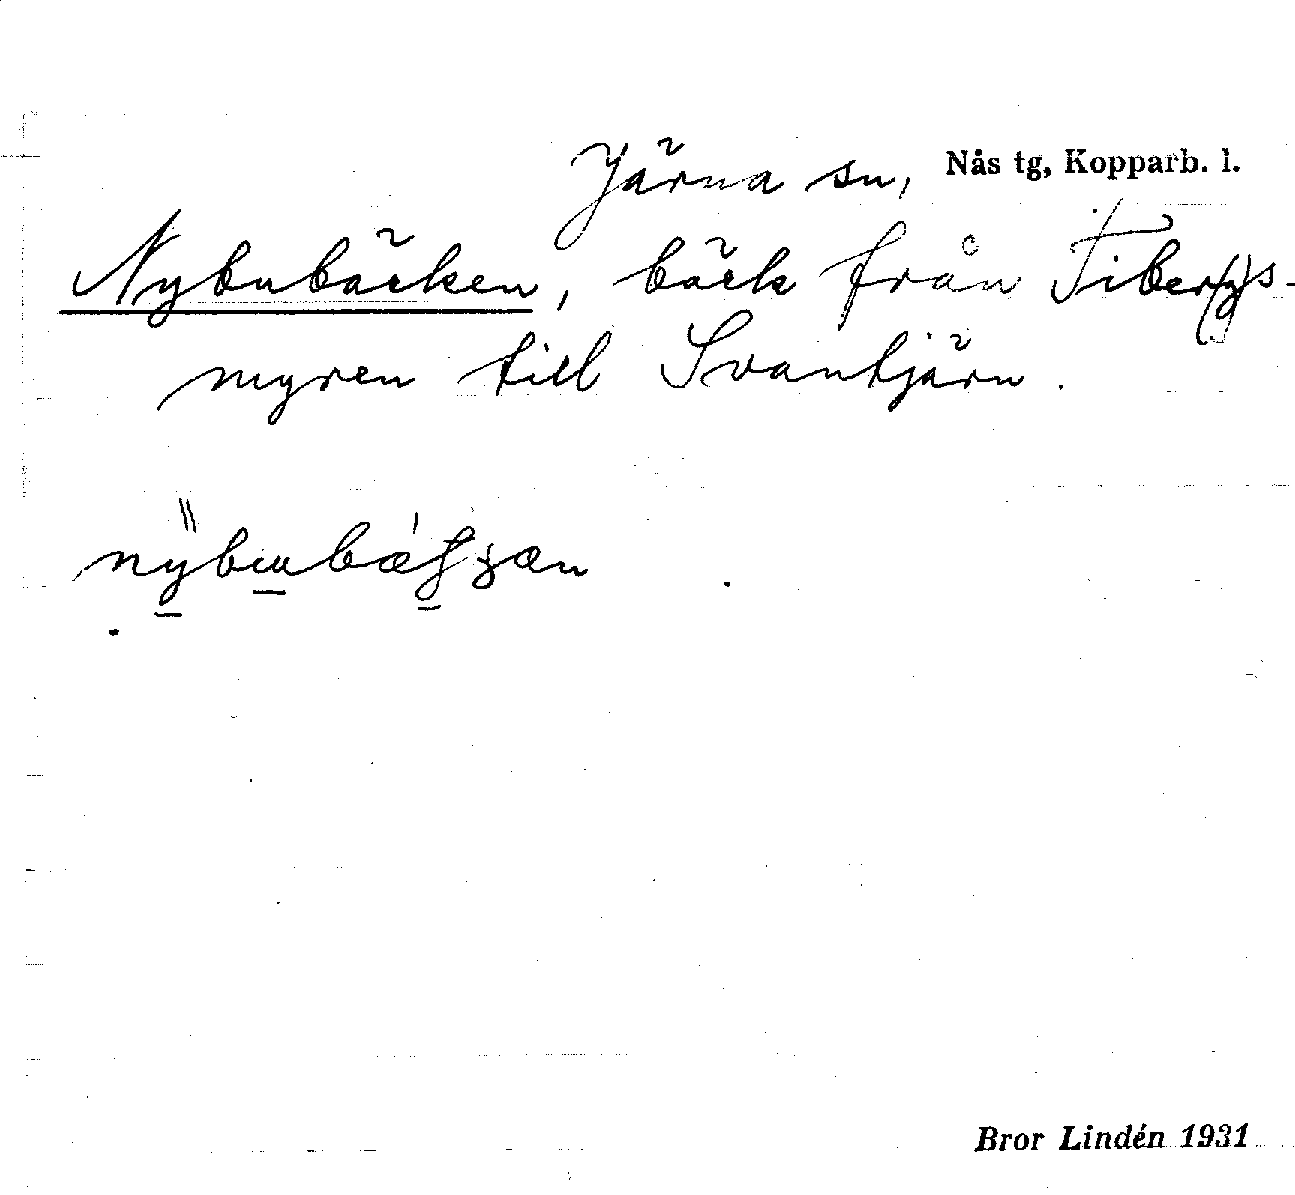 Järna sn, Nås tg, Kopparb. l.
Nybubäcken, bäck från Tiber(g)s-
myren till Svantjärn.
Bror Lindén 1931